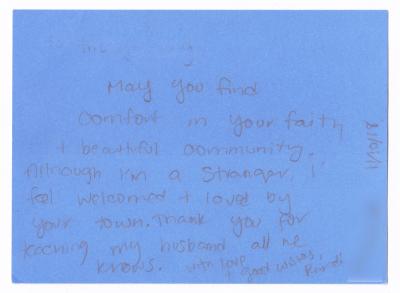 May you find
comfort in your faith
+ beautiful community.
Although I'm a stranger, I
feel welcomed + loved by
your town. Thank you for
teaching my husband all he
knows. with love
+ good wishes,